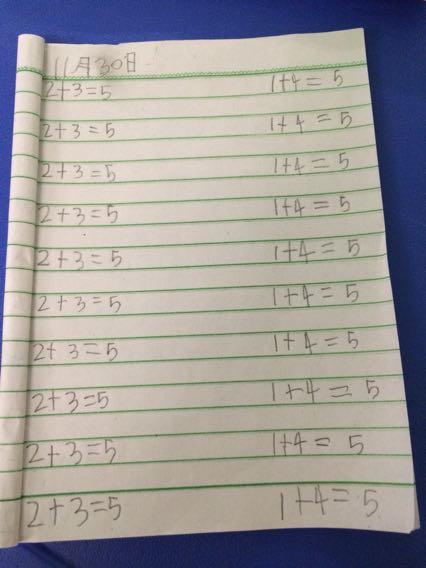 11月30日
2+3=5 1+4=5
2+3=5 1+4=5
2+3=5 1+4=5
2+3=5 1+4=5
2+3=5 1+4=5
2+3=5 1+4=5
2+3=5 1+4=5
2+3=5 1+4=5
2+3=5 1+4=5
2+3=5 1+4=5